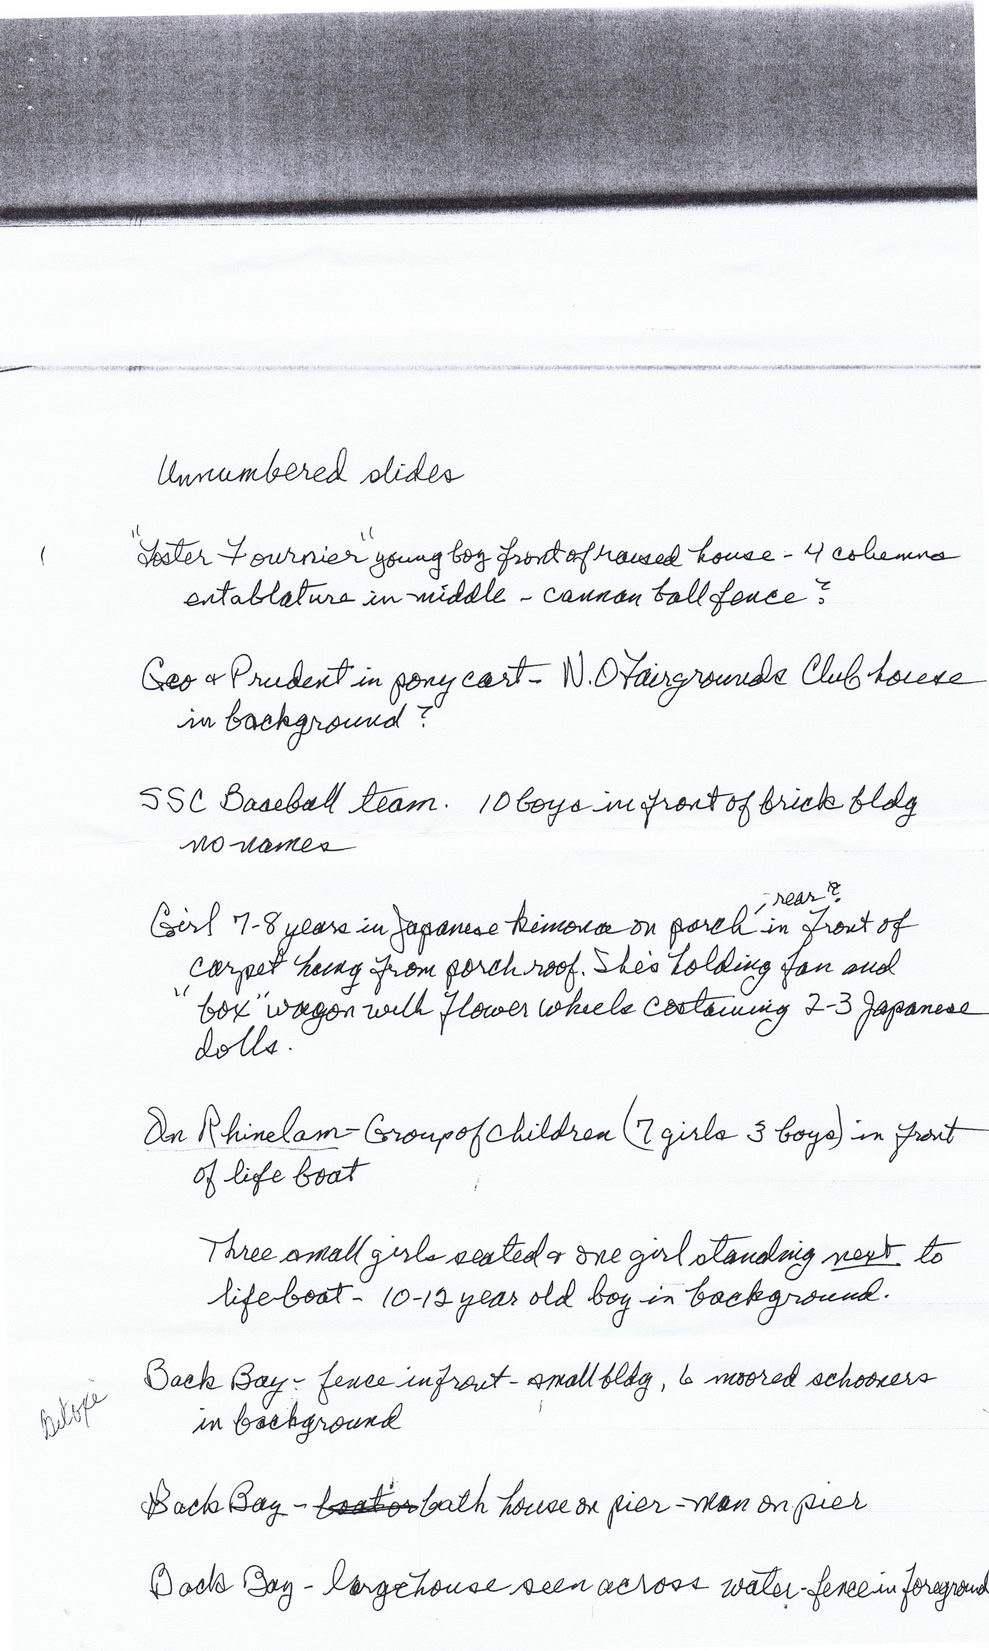 Unnumbered slides
"Foster Fournier" young boy front of raised house - 4 columns
entablature in middle - cannon ball fence?
Geo & Prudent in pony cart - N.O Fairgrounds Club house
in background?
SSC Baseball team. 10 boys in front of brick bldg
no names
, rear?
Girl 7-8 years in Japanese kimona on porch in front of
carpet hung from porch roof. She's holding fan and
"box" wagon with flower wheels containing 2-3 Japanese
dolls.
On Rhinelam - Group of children (7 girls 3 boys) in front
of life boat
Three small girls seated & one girl standing next to
life boat - 10-12 year old boy in background.
Back Bay - fence in front - small bldg, 6 moored schooners
in background
Back Bay - boat or bath house on pier - man on pier
Back Bay - large house seen across water - fence in foreground